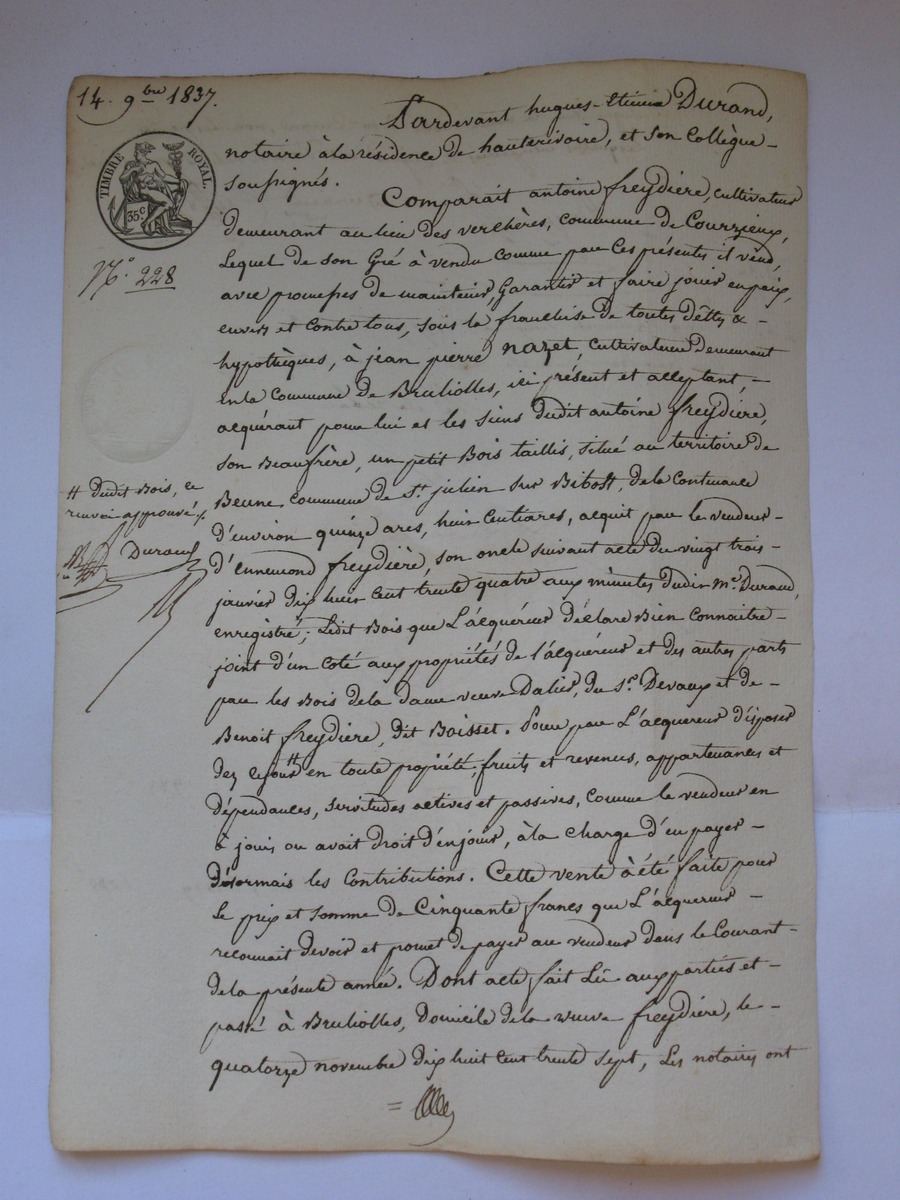 14. 9bre 1837.
TIMBRE ROYAL.
35c
No. 228
Pardevant hugues-Etienne Durand,
notaire à la résidence de hauterivoire, et son Collègue -
soussignés.
Comparait antoine freydière, cultivateur
demeurant au lieu des verchères, commune de Courzieux,
Lequel de son Gré à vendu comme par Ces présentes il vend,
avec promesses de maintenir, Garantir et faire jouir en paix,
envers et contre tous, sous la franchise de toutes dettes & -
hypothèques, à jean pierre nazet, cultivateur demeurant
en la Commune de Brullioles, ici présent et acceptant, -
acquérant pour lui et les siens dudit antoine freydière,
son Beaufrère, un petit Bois taillis, situé au territoire de
Beune commune de St. julien sur Bibost, de la Contenance
d'environ quinze ares, huit Centiares, acquit par le vendeur -
d'ennemond freydière, son oncle suivant acte du vingt trois -
janvier dix huit Cent trente quatre aux minutes dudit Me. Durand,
enregistré; Ledit Bois que L'acquéreur déclare Bien connaitre -
joint d'un coté aux propriétés de l'acquéreur et des autres parts
par les Bois de la dame veuve Dalier, du Sr. Devaux et de -
Benoit freydière, dit Boisset. Pour par L'acquereur disposer
dez ce jour # en toute propriété, fruits et revenus, appartenances et
dépendances, servitudes actives et passives, comme le vendeur en
à joui ou avait droit d'en jouir, à la charge d'en payer -
désormais les Contributions. Cette vente à été faite pour
le prix et somme de Cinquante francs que L'acquereur -
reconnait devoir et promet de payer au vendeur dans le Courant -
de la présente année. Dont acte fait Lû aux parties et -
passé à Brullioles, domicile de la veuve freydière, le -
quatorze novembre dix huit Cent trente sept, Les notaires ont
# Dudit Bois, ce
renvoi approuvé
Durand